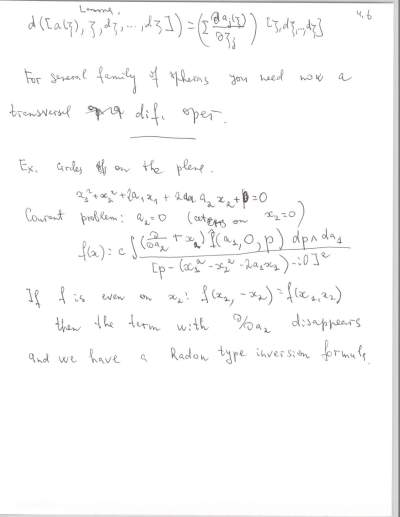 4.6
Lemma.
d([a(ξ), ξ, dξ, ..., dξ]) = (Σ ∂a_j(ξ)/∂ξ_j) [ξ, dξ, .., dξ]
For several family of spheres you need now a
transversal dif. oper.
Ex. Circles on the plane.
x_1^2 + x_2^2 + 2a_1x_1 + 2a_2x_2 + p = 0
Courant problem: a_2 = 0 (centers on x_2=0)
f(x) = c ∫ (∂/∂a_2 + x_2) f̂(a_1, 0, p) dp∧da_1 / [p - (x_1^2 - x_2^2 - 2a_1x_1) - i0]^2
If f is even on x_2: f(x_1, -x_2) = f(x_1, x_2)
then the term with ∂/∂a_2 disappears
and we have a Radon type inversion formula.